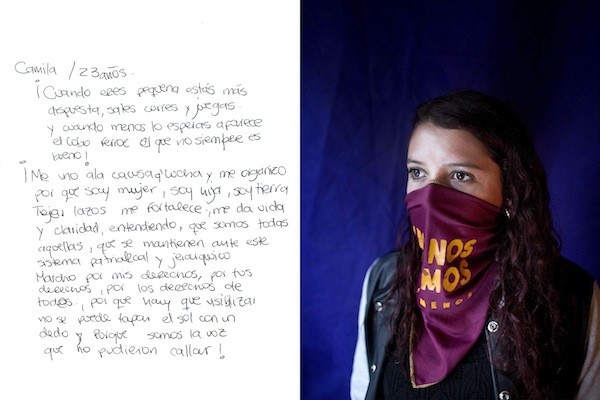 Camila / 23 años.
¡Cuando eres pequeña estás más
dispuesta, sales corres y juegas.
y cuando menos lo esperas aparece
el lobo feroz el que no siempre es
bueno!
¡Me uno a la causa q' lucha y me organizo
por que soy mujer, soy hija, soy tierra
Tejer lazos me fortalece, me da vida
y claridad, entendiendo, que somos todas
aquellas, que se mantienen ante este
sistema patriarcal y jerarquico
Marcho por mis derechos, por tus
derechos, por los derechos de
todos., por que hay que visibilizar
no se puede tapar el sol con un
dedo y porque somos la voz
que no pudieron callar!
NOS
MOS